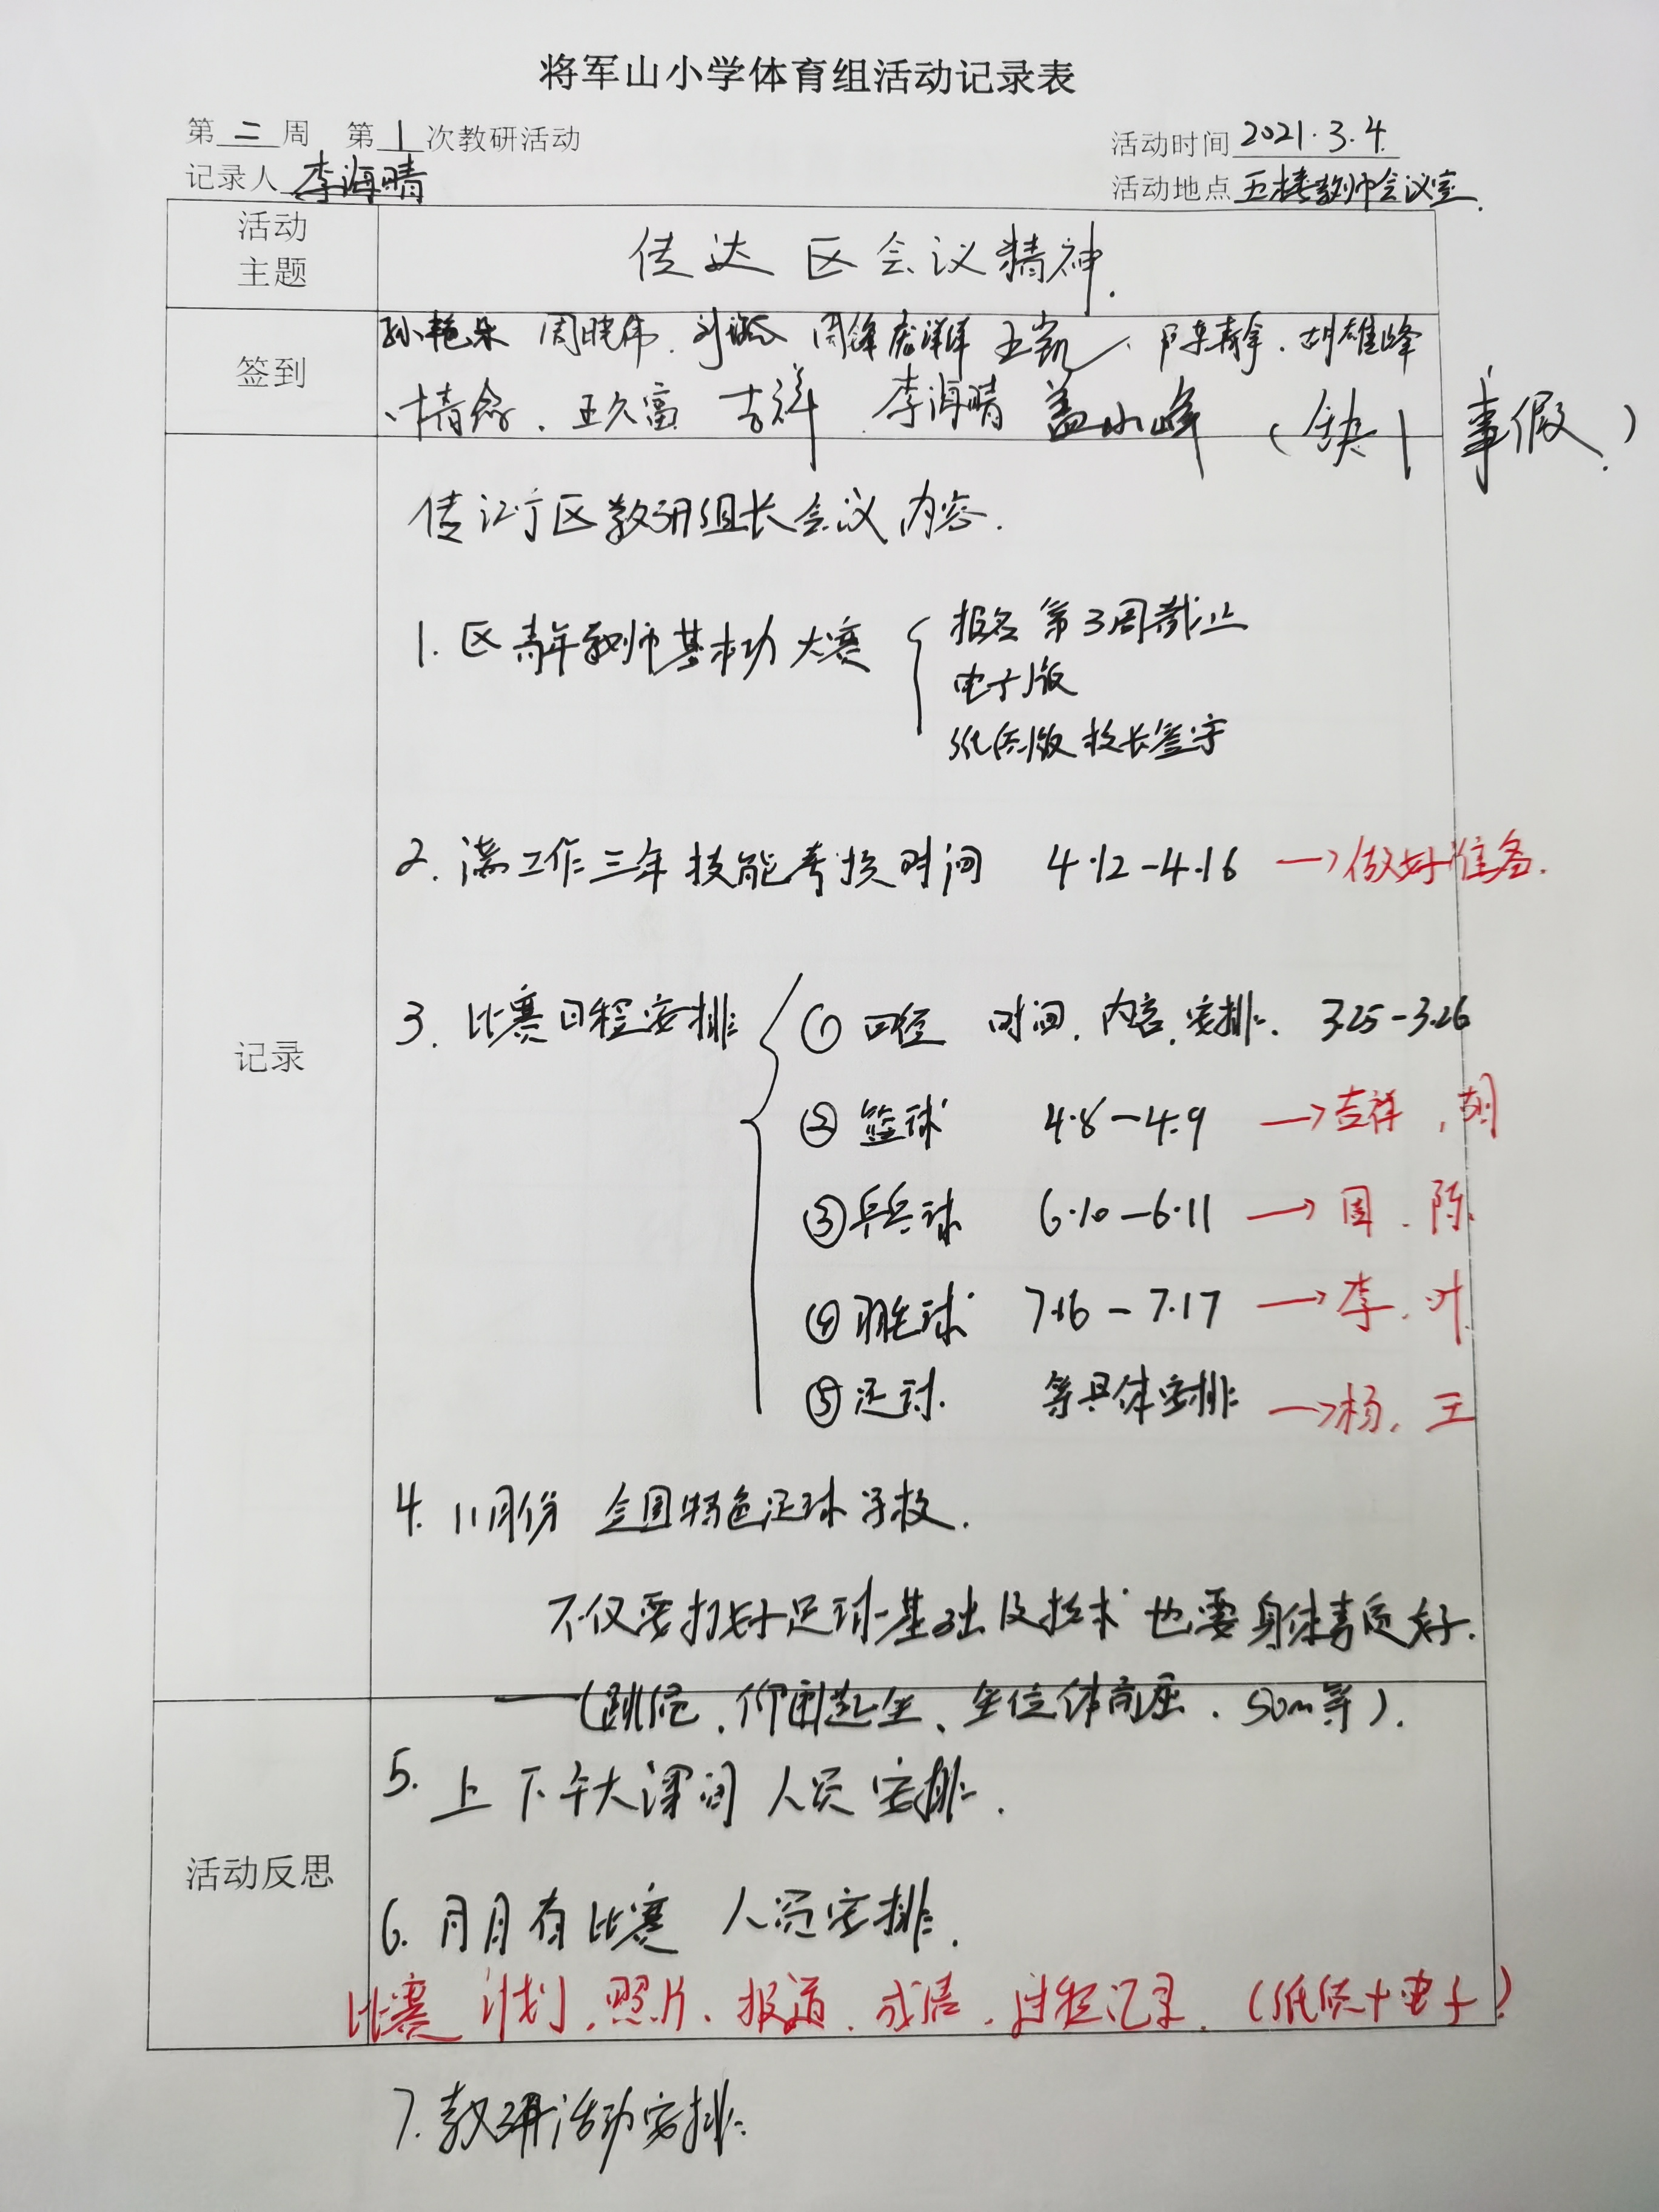 将军山小学体育组活动记录表
第二周 第1次教研活动 活动时间2021.3.4.
记录人 李海晴 活动地点 五楼教师会议室.
活动
主题
传达区会议精神.
签到
孙艳朵 周晓伟. 刘 周锋 庞洋洋 王凯、陈静. 胡雄峰
叶倩 . 王久富 吉祥 李海晴 盖小峰 (缺1 事假.)
记录
传江宁区教研组长会议内容.
1. 区青年教师基本功大赛
报名第3周截止
电子版
纸质版校长签字
2. 满工作三年技能考核时间 4.12-4.16 →做好准备.
3. 比赛日程安排
① 田径 时间.内容.安排. 3.25-3.26
② 篮球 4.8-4.9 →吉祥,胡
③乒乓球 6.10-6.11 →周.陈
④羽毛球 7.16-7.17 →李.叶
⑤足球. 等具体安排 →杨.王
4. 11月份 全国特色足球学校.
不仅要打好足球基础及技术 也要身体素质好.
(跳绳、仰卧起坐、坐位体前屈、50m等).
活动反思
5. 上下午大课间人员安排.
6. 月月有比赛 人员安排.
比赛 计划、照片、报道、成绩、过程记录. (纸质+电子)
7. 教研活动安排.